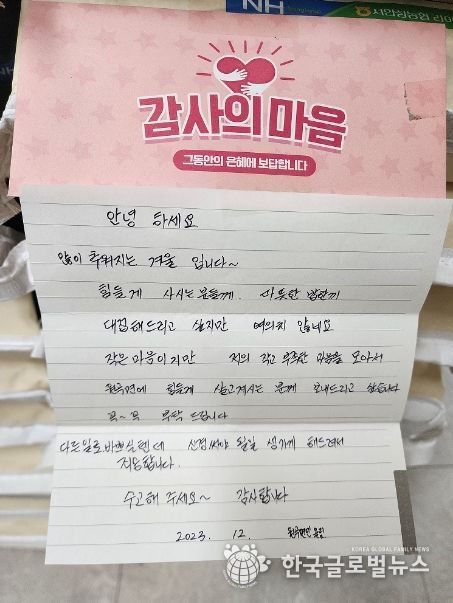 NH
감사의 마음
그동안의 은혜에 보답합니다
안녕 하세요
많이 추워지는 겨울 입니다~
힘들게 사시는 분들께. 따뜻한 밥한끼
대접해드리고 싶지만 여의치 않네요
작은 마음이지만 저의 작고 부족한 마음을 모아서
힘들게 살고계시는 분께 보내드리고 싶습니다
꼭~꼭 부탁 드립니다
다른일로 바쁘실텐데 신경써야 될일 생기게 해드려서
죄송합니다.
수고해 주세요~ 감사합니다
2023. 12.
KOREA GLOBAL FAMILY NEWS
한국글로벌뉴스